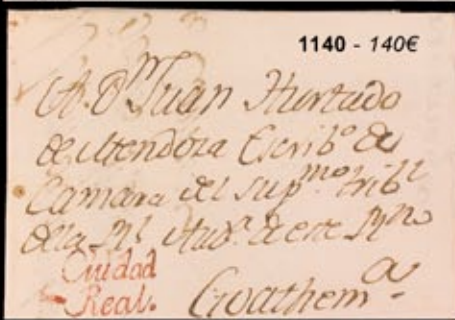 1140 - 140€
A D.ⁿ Juan Hurtado
de Mendoza Escrib.º de
Camara del Sup.ᵐᵒ trib.ˡ
de la Rˡ Aud.ª de este Rⁿᵒ
Ciudad
Real.
Goathem.ª